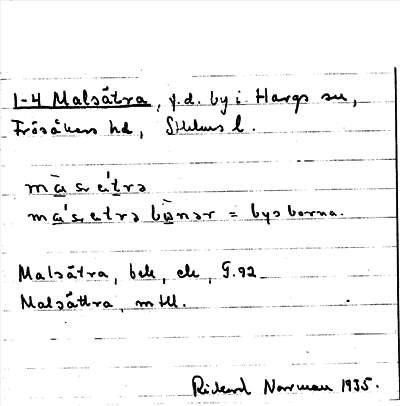 1-4 Malsätra, f.d. by i Hargs sn,
Frösåkers hd, Sthlms l.
màsætrə
másætrə bònər = bysborna.
Malsätra, bek, ek, G.92
Malsättra, mtll.
Rickard Norrman 1935.